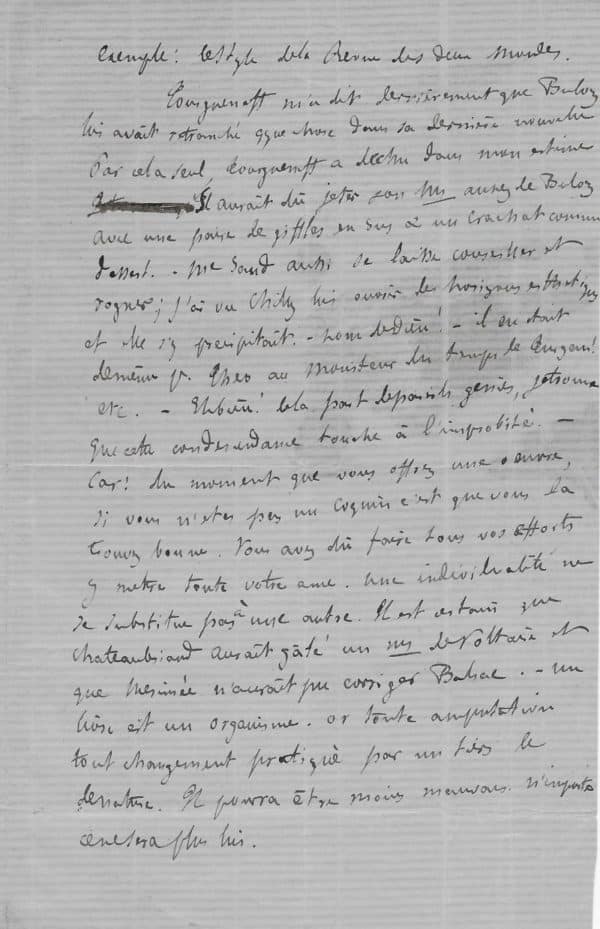 Exemple : le style de la Revue des deux mondes.
Tourgueneff m'a dit dernièrement que Buloz
lui avait retranché qque chose dans sa dernière nouvelle
Par cela seul, Tourgueneff a déchu dans mon estime
Il aurait dû jeter son ms au nez de Buloz
avec une paire de giffles en sus & un crachat comme
dessert. - Me Sand aussi se laisse conseiller et
rogner ; j'ai vu Chilly lui ouvrir des horizons esthétiques
et elle s'y précipitait. - nom de dieu ! - il en était
de même pr Théo au moniteur du temps de Turgan !
etc. - Eh bien ! de la part de pareils génies, je trouve
que cette condescendance touche à l'improbité. -
Car ! du moment que vous offrez une oeuvre,
si vous n'êtes pas un coquin c'est que vous la
trouvez bonne. Vous avez dû faire tous vos efforts
y mettre toute votre ame. une individualité ne
se substitue pas à une autre. Il est certain que
Chateaubriand aurait gâté un ms de Voltaire et
que Mérimée n'aurait pu corriger Balzac. - un
livre est un organisme. or toute amputation
tout changement pratiqué par un tiers le
dénature. Il pourra être moins mauvais. n'importe
ce ne sera plus lui.